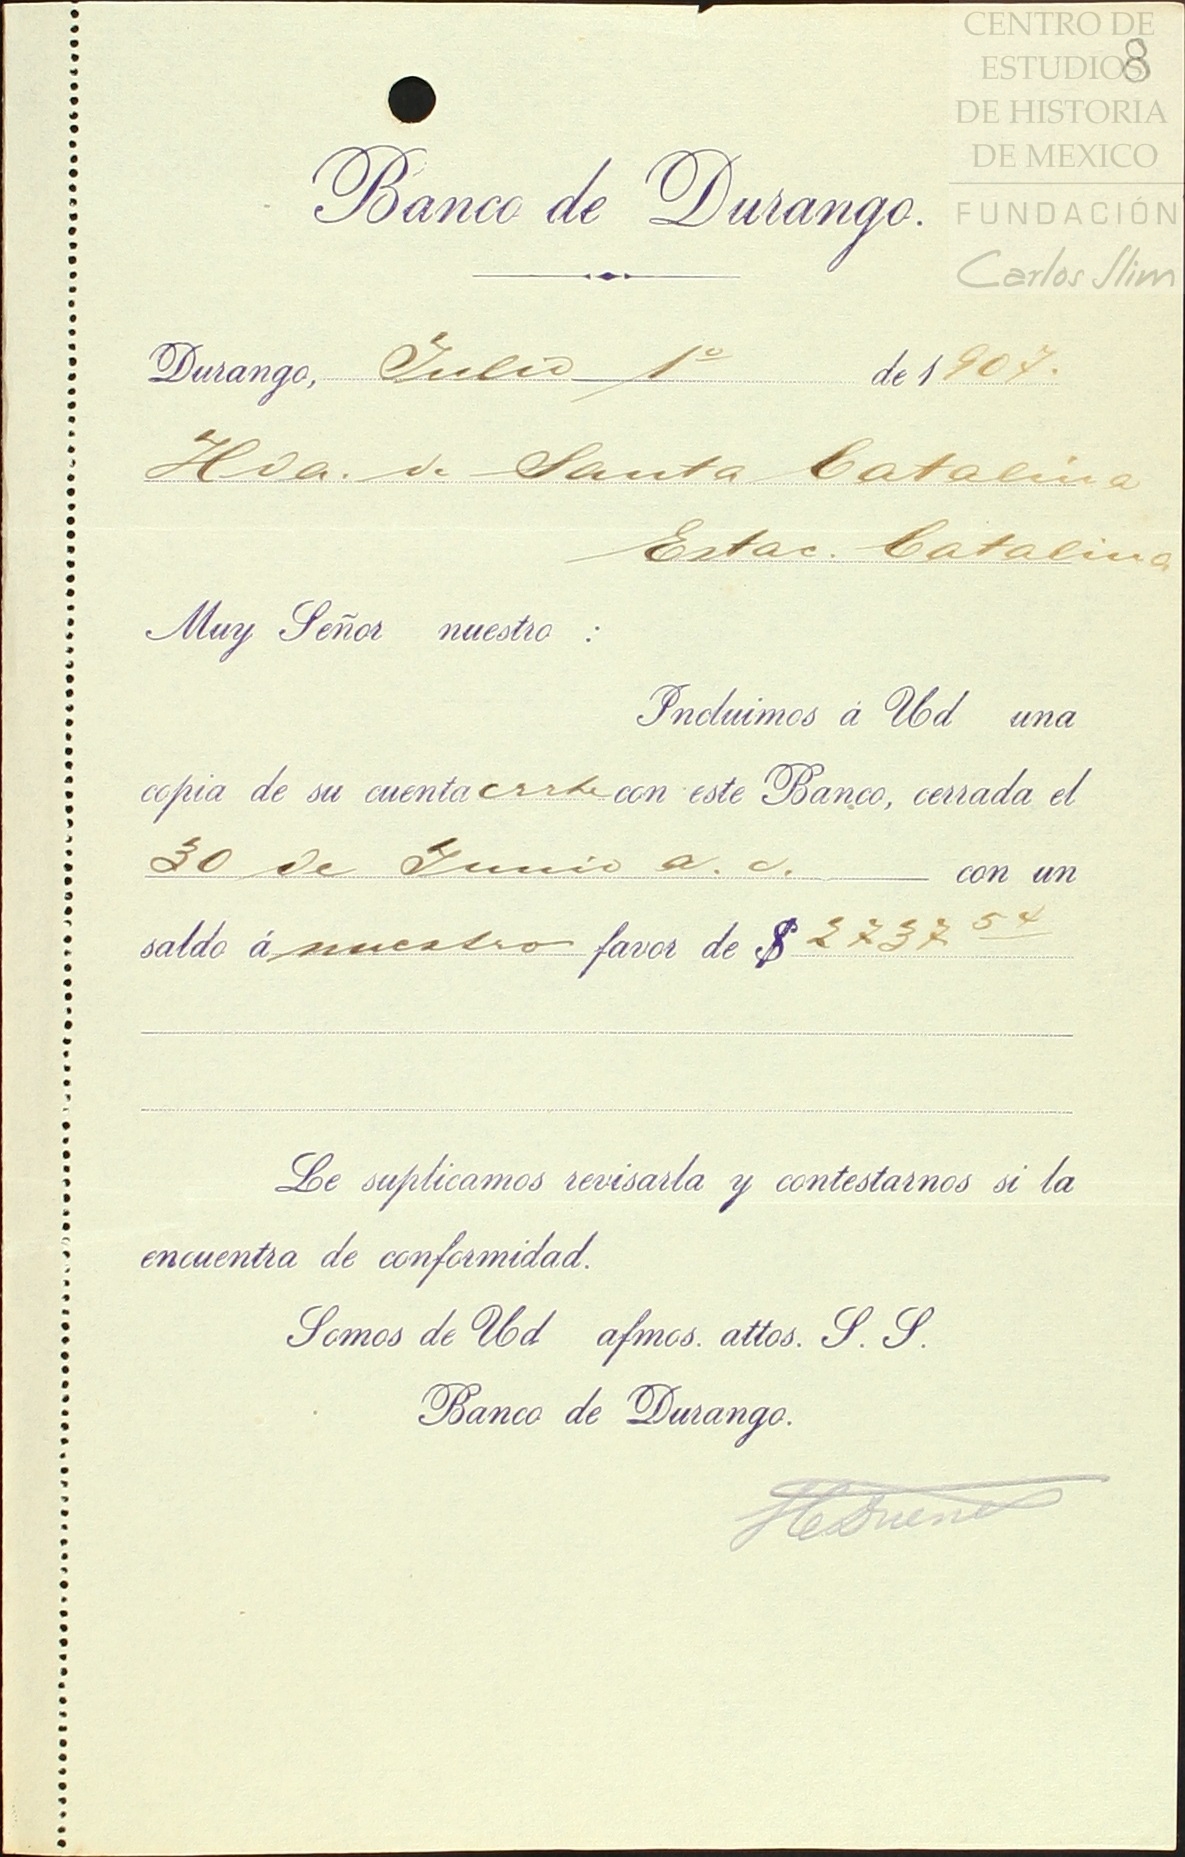 CENTRO DE
ESTUDIOS
DE HISTORIA
DE MEXICO
FUNDACIÓN
Carlos Slim
8
Banco de Durango.
Durango, Julio 1º de 1907.
Hda. de Santa Catalina
Estac. Catalina
Muy Señor nuestro :
Incluimos á Ud una
copia de su cuenta crrte con este Banco, cerrada el
30 de Junio a. c. con un
saldo á nuestro favor de $ 2737 54
Le suplicamos revisarla y contestarnos si la
encuentra de conformidad.
Somos de Ud afmos. attos. S. S.
Banco de Durango.